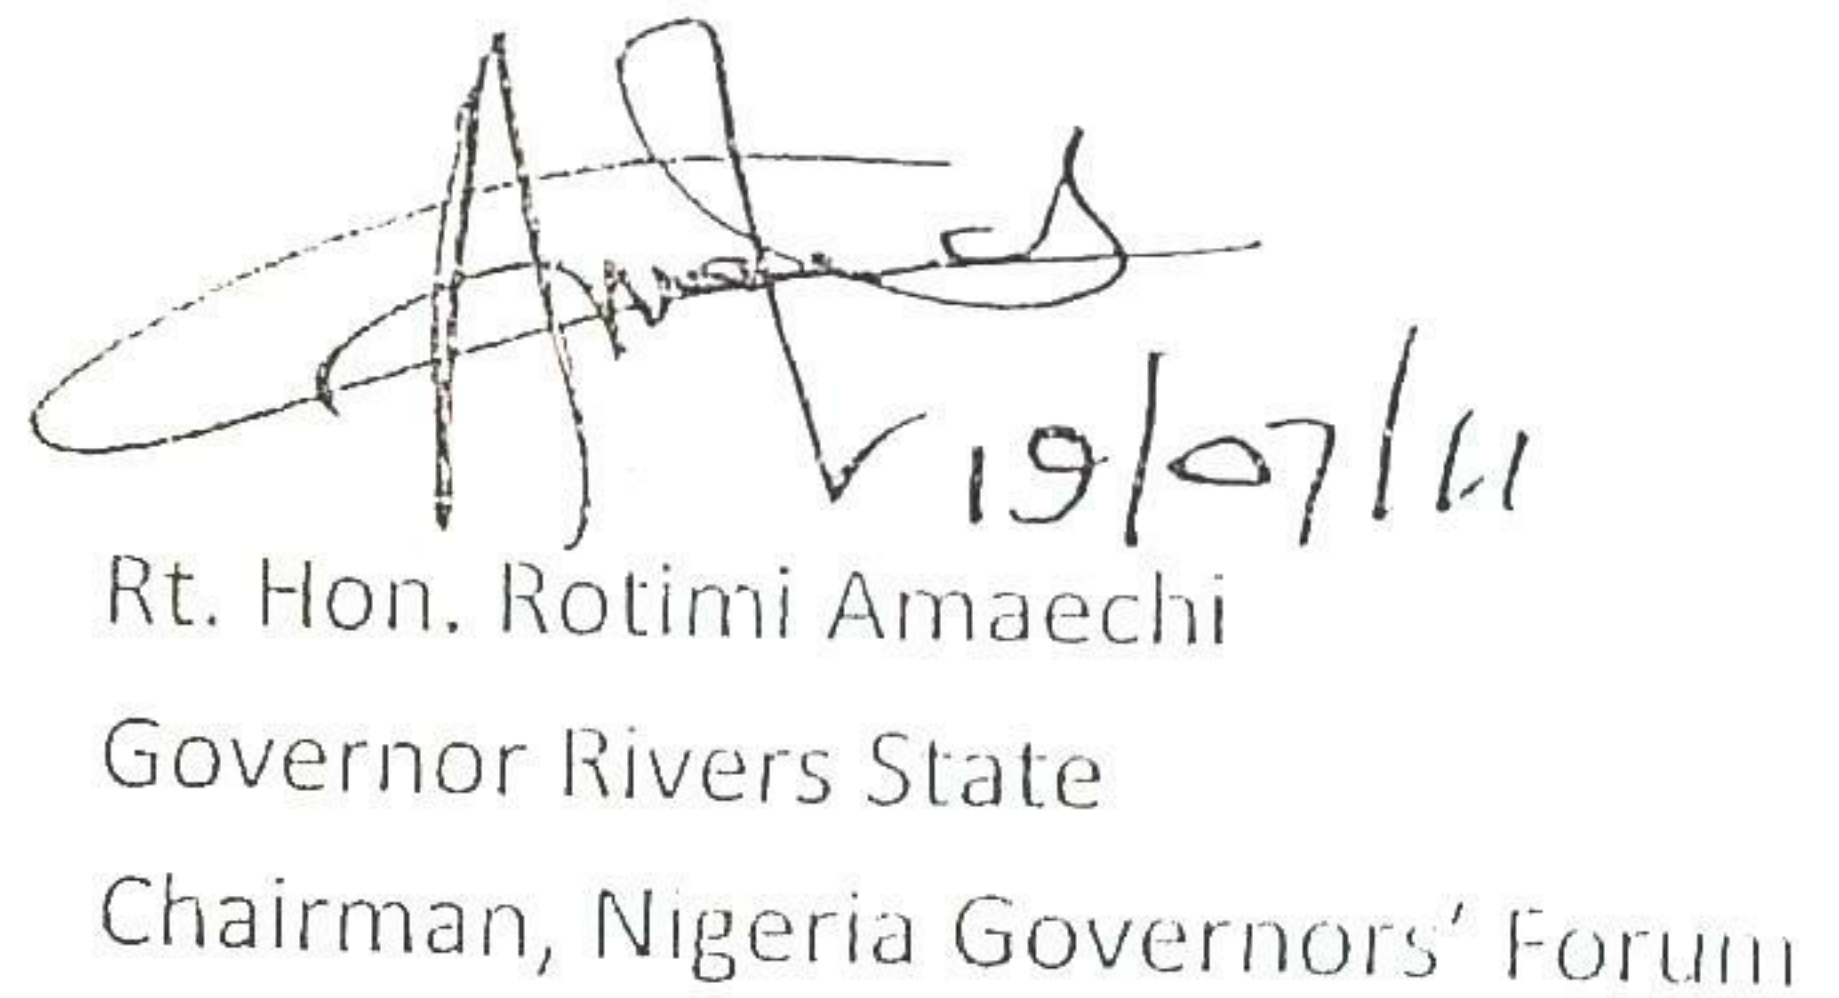 19/07/11
Rt. Hon. Rotimi Amaechi
Governor Rivers State
Chairman, Nigeria Governors' Forum